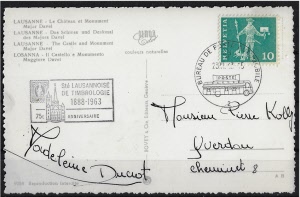 LAUSANNE - Le Château et Monument
Major Davel
LAUSANNE - Das Schloss und Denkmal
des Majors Davel
LAUSANNE - The Castle and Monument
Major Davel
LOSANNA - Il Castello e Monumento
Maggiore Davel
HELVETIA
10
BUREAU DE
Sté LAUSANNOISE
DE TIMBROLOGIE
1888-1963
75e
ANNIVERSAIRE
Madeleine Ducrot
Monsieur Pierre Kolly
Yverdon
cheminet 8
Reproduction interdite